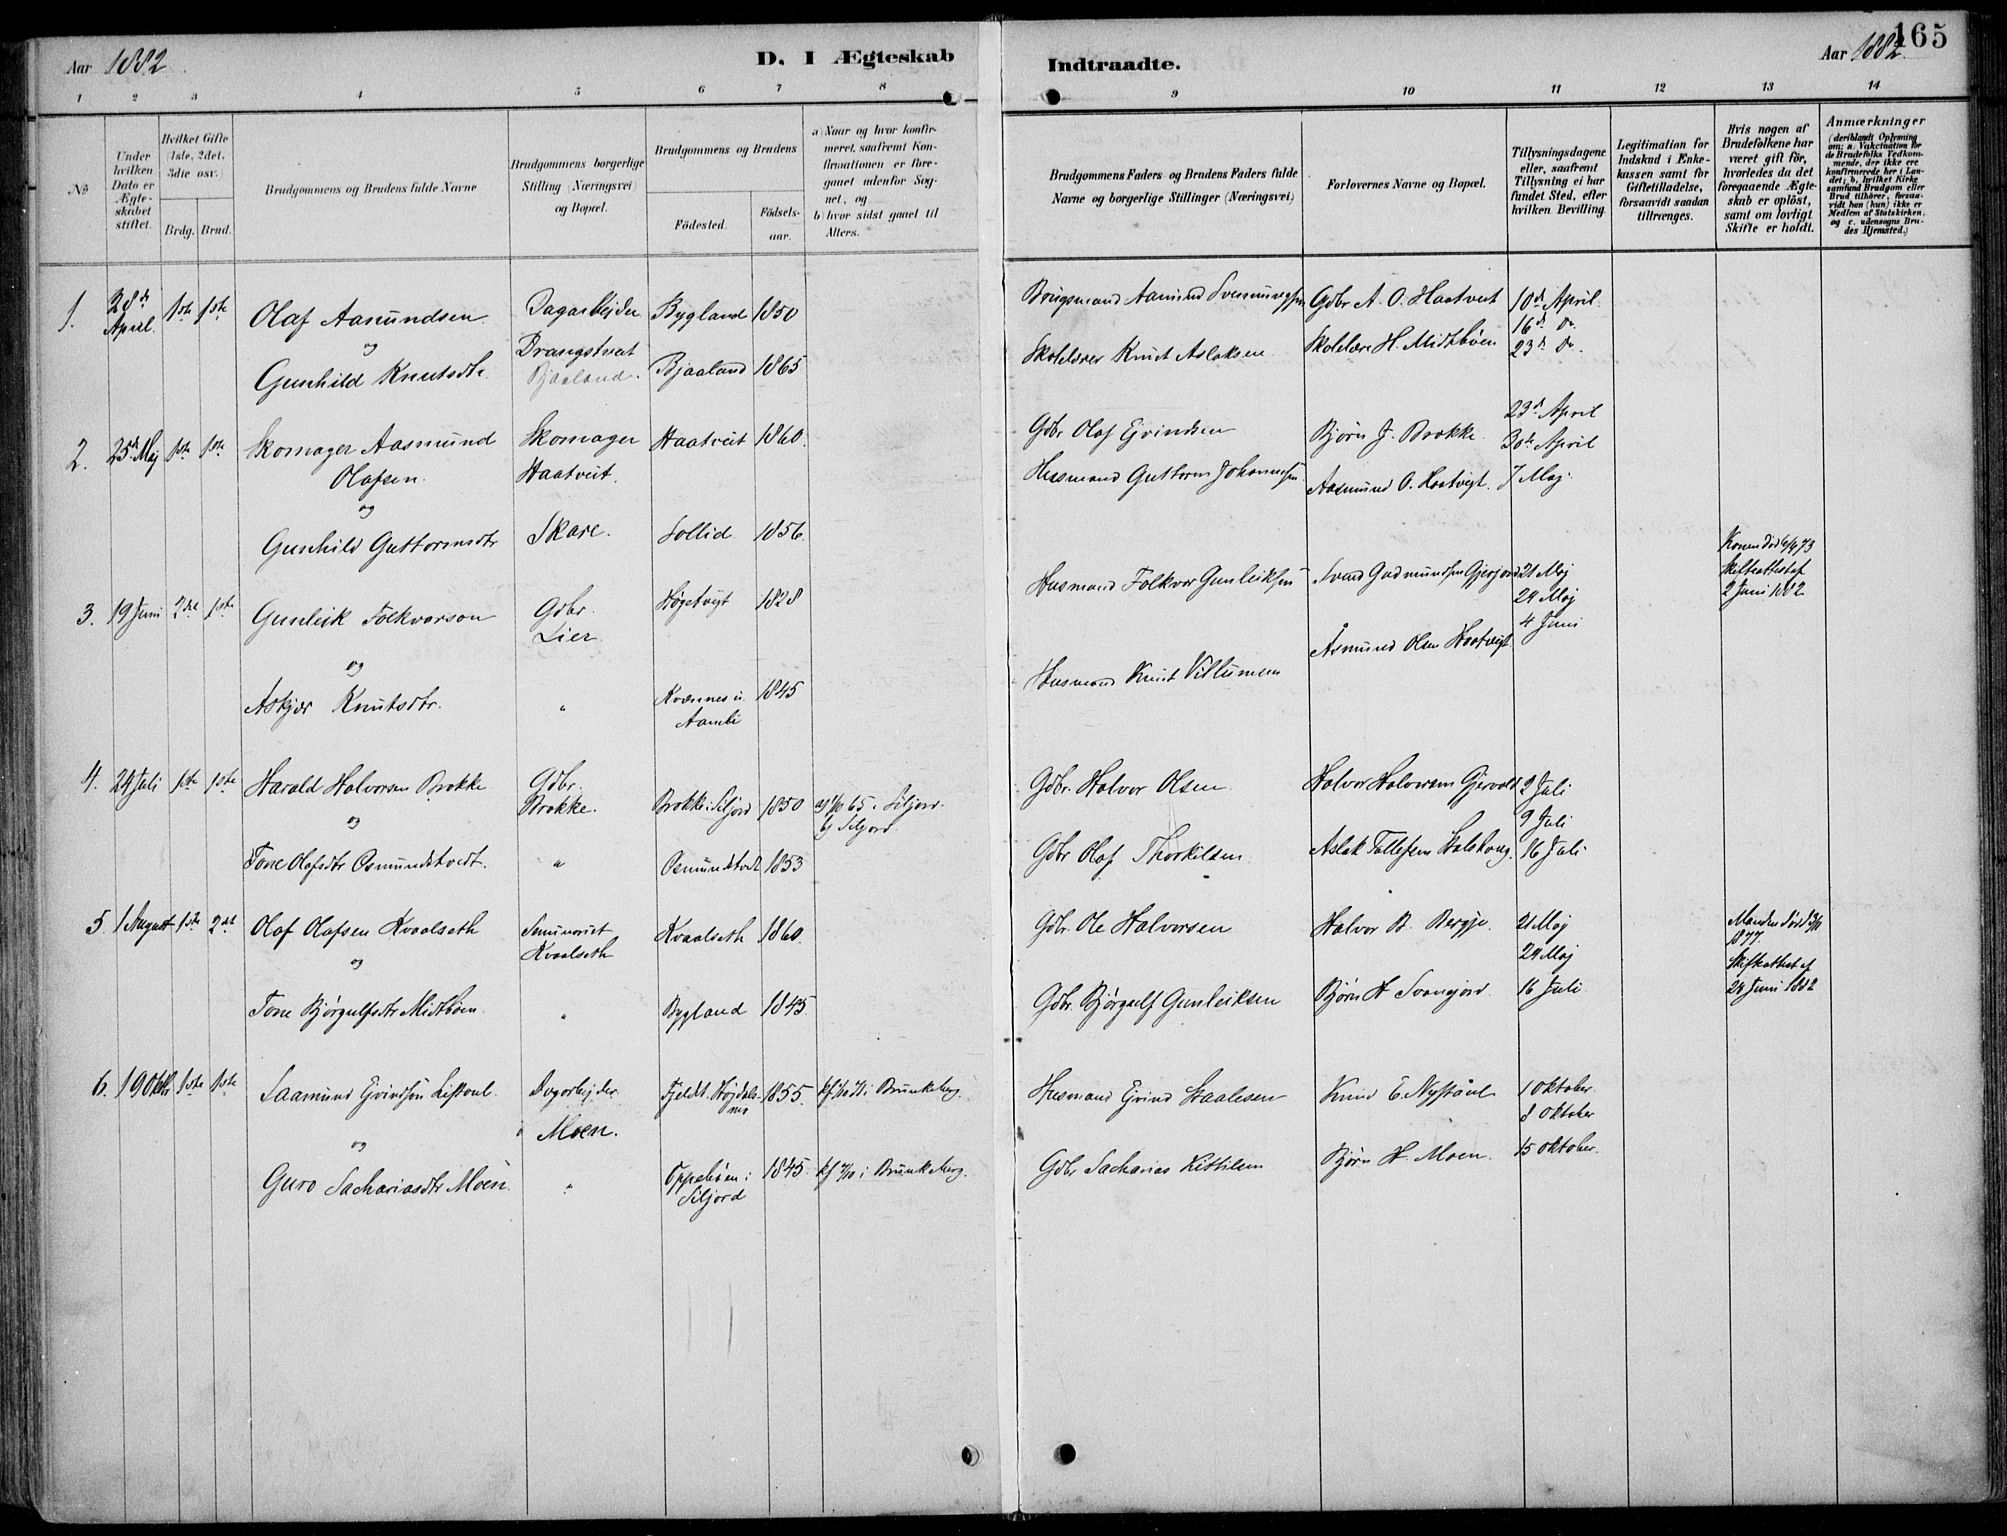 Aar 1882
D. I Ægteskab
Indtraadte.
Aar 1882
165
1 2 3 4 5 6 7 8 9 10 11 12 13 14
No
Under hvilken Dato er Ægteskabet stiftet.
Hvilket Gifte (1ste, 2det, 3die osv.)
Brdg. Brud.
Brudgommens og Brudens fulde Navne
Brudgommens borgerlige Stilling (Næringsvei) og Bopæl.
Brudgommens og Brudens
Födested.
Födsels-aar.
a) Naar og hvor konfirmeret, saafremt Konfirmationen er foregaaet udenfor Sognet, og
b) hvor sidst gaaet til Alters.
Brudgommens Faders og Brudens Faders fulde Navne og borgerlige Stillinger (Næringsvei)
Forlovernes Navne og Bopæl.
Tillysningsdagene eller, saafremt Tillysning ei har fundet Sted, efter hvilken Bevilling.
Legitimation for Indskud i Enkekassen samt for Giftetilladelse, forsaavidt saadan tiltrænges.
Hvis nogen af Brudefolkene har været gift för, hvorledes da det foregaaende Ægteskab er oplöst, samt om lovligt Skifte er holdt.
Anmærkninger
(deriblandt Oplysning om: a. Vakcination for de Brudefolks Vedkommende, der ikke ere konfirmerede her i Landet; b. hvilket Kirkesamfund Brudgom eller Brud tilhörer, forsaavidt han (hun) ikke er Medlem af Statskirken, og c. udensogns Brudes Hjemsted.)
1. 28de April 1ste 1ste Olaf Aasmundsen Dagarbejder Bygland 1850
Brugsmand Aamund Gdbr A. O. Haatveit 10de April
og Drangstveit 16d Do.
Gunhild Knutsdtr. Bjaaland. Bjaaland 1865
Skolelærer Knut Aslaksen Skolelære H. Midtbøen 23d Do.
2. 25de Maj 1ste 1ste Skomager Aasmund Skomager Haatveit 1860.
Gdbr Olaf Ejvindsen Bjørn J. Brokke. 23d April
Olafsen. Haatveit. 30te April
Husmand Guttorm Johannesen Aasmund O. Haatvigt. 7 Maj.
og
Gunhild Guttormsdtr Skare. Sollid 1856.
3. 19 Juni 2det 1ste Gunleik Folkvarson Gdbr. Høgetvejt 1828
Husmand Folkvar Gunleiksen Svend Gudmundsen Gjersjord 21 Maj
Konen død 6/4 73
Skifteattest af
2 Juni 1882
Lier. 29 Maj
4 Juni
og Åsmund Olsen Haatvejt
Askjær Knutsdtr. " Kværnes i Aambø 1845
Husmand Knut Villumsen
4. 24 Juli 1ste 1ste Harald Halvorsen Brokke Gdbr. Brokke. Brokke i Siljord 1850 i Siljord.
b) Siljord.
Gdbr. Halvor Olsen. Halvor Halvorsen Gjervold 2 Juli
og 9 Juli
Tone Olafsdtr Osmundstvedt. " Osmundstvdt 1853
Gdbr Olaf Thorkildsen Aslak Tallefsen 16 Juli
5. 1 August 1ste 2det Olaf Olafsen Kvaalseth Seminarist Kvaalseth Kvaalseth 1860.
Gdbr. Ole Halvorsen Halvor B. Bergje. 21 Maj
Manden død
1877.
Skifteattest af
24 Juni 1882
og 29 Maj
Tone Bjørgulfsdtr Midtbøen. " Bygland 1845
Gdbr. Bjørgulf Gunleiksen Bjørn H Svangjord. 16 Juli
6. 19 Oktbr 1ste 1ste Saamund Ejvindsen Liftoul. Dagarbejder Fjeldt. Højdalsmo 1855. i Brunkeberg.
Husmand Ejvind Staalesen Knud E. Nystaul 1 Oktober.
8 Oktober
og Moen.
Guro Sachariasdtr Moen. " Oppebøen i Siljord 1845. i Brunkeberg.
Gdbr Sacharias Kittilsen Bjørn H. Moen. 15 Oktober.